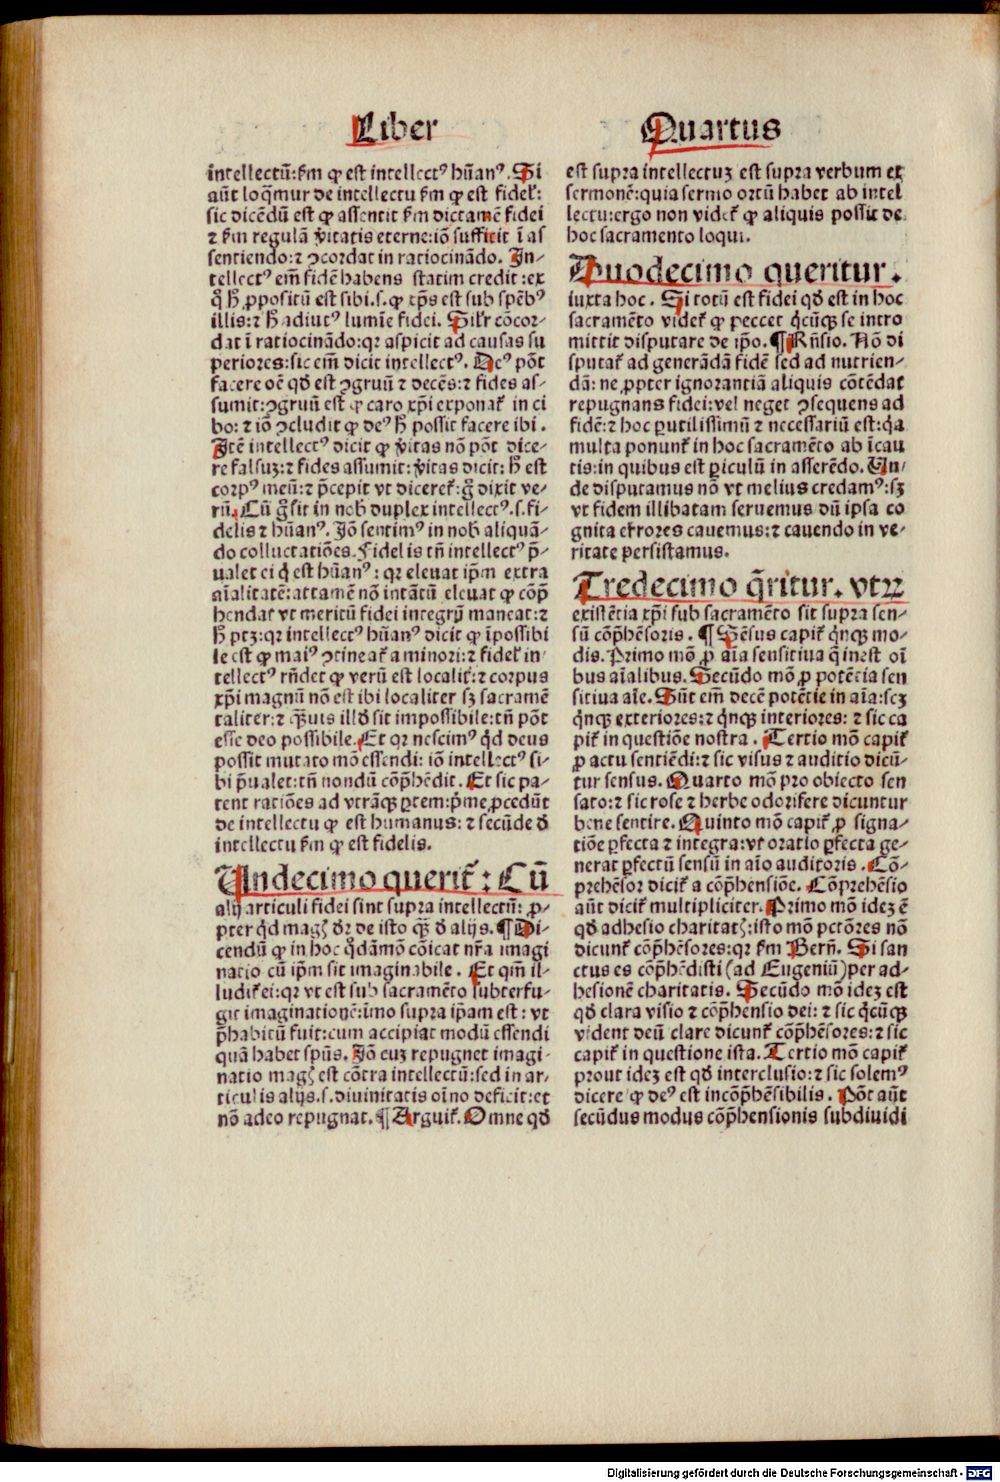 Liber Quartus
intellectū: ẜm ꝙ est intellectꝰ hūanꝰ. Si
aūt loq̄mur de intellectu ẜm ꝙ est fideł:
sic dicēdū est ꝙ assentit ẜm dictamē fidei
⁊ ẜm regulā v̄itatis eterne: iō sufficit ī as
sentiendo: ⁊ ꝯcordat in ratiocināndo. In⸗
tellectꝰ em̄ fidē habens statim credit: ex
q̊ ħ ꝓpositū est sibi .s. ꝙ xp̄s est sub spēbꝰ
illis: ⁊ ħ adiutꝰ lumīe fidei. Silr̄ cōcor⸗
dat ī ratiocinādo: qr aspicit ad causas su
periores: sic em̄ dicit intellectꝰ. Deꝰ pōt
facere oē qd̄ est ꝯgruū ⁊ decēs: ⁊ fides as⸗
sumit: ꝯgruū est ꝙ caro xp̄i exponat̄ in ci
bo: ⁊ iō ꝯcludit ꝙ deꝰ ħ possit facere ibi.
Itē intellectꝰ dicit ꝙ v̄itas nō pōt dice⸗
re falsuꝫ: ⁊ fides assumit: v̄itas dicit: ħ est
corpꝰ meū: ⁊ p̄cepit vt diceret̄: g̊ dixit ve⸗
rū. Cū g̊ sit in nob̄ duplex intellectꝰ .s. fi⸗
delis ⁊ hūanꝰ. Iō sentimꝰ in nob̄ aliquā⸗
do colluctatiōes. Fidelis tn̄ intellectꝰ p̄⸗
ualet ei q̇ est hūanꝰ: qr eleuat ip̄m extra
aīalitatē: attamē nō intātū eleuat ꝙ cōp̄
hendat vt meritū fidei integrꝝ maneat: ⁊
ħ ptꝫ: qr intellectꝰ hūanꝰ dicit ꝙ īpossibi
le est ꝙ maiꝰ ꝯtineat̄ a minori: ⁊ fideł in⸗
tellectꝰ rn̄det ꝙ verū est localit̄: ⁊ corpus
xp̄i magnū nō est ibi localiter sꝫ sacramē
taliter: ⁊ q̄uis illd̄ sit impossibile: tn̄ pōt
esse deo possibile. Et qr nescimꝰ qd̄ deus
possit mutato mō essendi: iō intellectꝰ si⸗
bi p̄ualet: tn̄ nondū cōp̄hēdit. Et sic pa⸗
tent ratiōes ad vtrāqꝫ ꝑtem: p̄me ꝓcedūt
de intellectu ꝙ est humanus: ⁊ secūde d̄
intellectu ẜm ꝙ est fidelis.
Undecimo querit̄: Cū
alij articuli fidei sint supra intellectū: ꝓ⸗
pter qd̄ magꝭ dr̄ de isto q̄ȝ d̄ alijs. ¶ Di⸗
cendū ꝙ in hoc q̄dāmō cōicat nr̄a imagi
natio cū ip̄m sit imaginabile. Et qm̄ il⸗
ludit̄ ei: qr vt est sub sacramēto subterfu⸗
git imaginationē: imo supra ip̄am est: vt
p̄habitū fuit: cum accipiat modū essendi
quā habet spūs. Iō cuꝫ repugnet imagi⸗
natio magꝭ est cōtra intellectū: sed in ar⸗
ticulis alijs .s. diuinitatis oīno deficit: et
nō adeo repugnat. ¶ Arguit̄. Omne qd̄
est supra intellectuꝫ est supra verbum et
sermonē: quia sermo ortū habet ab intel
lectu: ergo non videt̄ ꝙ aliquis possit de
hoc sacramento loqui.
Duodecimo queritur.
iuxta hoc. Si totū est fidei qd̄ est in hoc
sacramēto videt̄ ꝙ peccet q̇cūqꝫ se intro
mittit disputare de ip̄o. ¶ Rn̄sio. Nō di
sputat̄ ad generādā fidē sed ad nutrien⸗
dā: ne ꝓpter ignorantiā aliquis cōtēdat
repugnans fidei: vel neget ꝯsequens ad
fidē: ⁊ hoc ꝑutilissimū ⁊ necessariū est: q̇a
multa ponunt̄ in hoc sacramēto ab īcau
tis: in quibus est ꝑiculū in asserēdo. Un⸗
de disputamus nō vt melius credamꝰ: sꝫ
vt fidem illibatam seruemus dū ipsa co
gnita errores cauemus: ⁊ cauendo in ve⸗
ritate persistamus.
Tredecimo q̄ritur. vtꝝ
existētia xp̄i sub sacramēto sit supra sen⸗
sū cōp̄hēsoris. ¶ Sēsus capit̄ q̇nqꝫ mo⸗
dis. Primo mō ꝓ aīa sensitiua q̄ inest oī
bus aīalibus. Secūdo mō ꝓ potētia sen
sitiua aīe. Sūt em̄ decē potētie in aīa: scꝫ
q̇nqꝫ exteriores: ⁊ q̇nqꝫ interiores: ⁊ sic ca
pit̄ in questiōe nostra. Tertio mō capit̄
ꝓ actu sentiēdi: ⁊ sic visus ⁊ auditio dicū⸗
tur sensus. Quarto mō pro obiecto sen
sato: ⁊ sic rose ⁊ herbe odorifere dicuntur
bene sentire. Quinto mō capit̄ ꝓ signa⸗
tiōe ꝑfecta ⁊ integra: vt oratio ꝑfecta ge⸗
nerat ꝑfectū sensū in aīo auditoris. Cō⸗
prehēsor dicit̄ a cōp̄hensiōe. Cōprehēsio
aūt dicit̄ multipliciter. Primo mō ideꝫ ē
qd̄ adhesio charitatꝭ: isto mō pctōres nō
dicunt̄ cōp̄hēsores: qr ẜm Bern̄. Si san
ctus es cōp̄hēdisti (ad Eugeniū) per ad⸗
hesionē charitatis. Secūdo mō ideꝫ est
qd̄ clara visio ⁊ cōp̄hensio dei: ⁊ sic q̇cūqꝫ
vident deū clare dicunt̄ cōp̄hēsores: ⁊ sic
capit̄ in questione ista. Tertio mō capit̄
prout ideꝫ est qd̄ interclusio: ⁊ sic solemꝰ
dicere ꝙ deꝰ est incōp̄hēsibilis. Pōt aūt
secūdus modus cōp̄hensionis subdiuidi
Digitalisierung gefördert durch die Deutsche Forschungsgemeinschaft - DFG